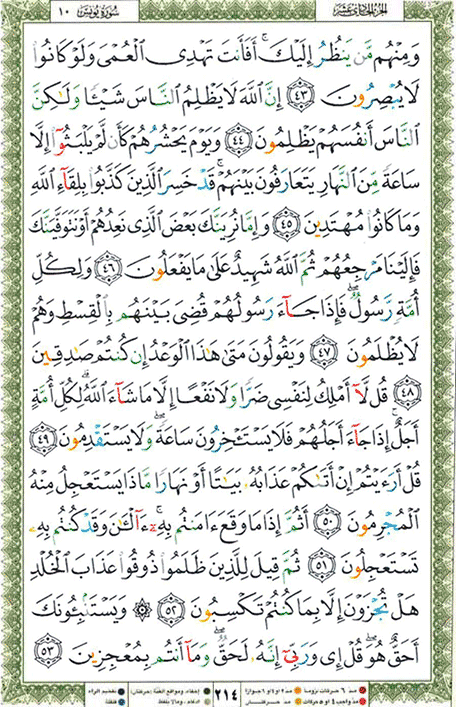 سُورَةُ يُونُسَ ١٠
الجزء الحادي عشر
وَمِنْهُم مَّن يَنظُرُ إِلَيْكَ ۚ أَفَأَنتَ تَهْدِى ٱلْعُمْىَ وَلَوْ كَانُوا۟
لَا يُبْصِرُونَ ٤٣ إِنَّ ٱللَّهَ لَا يَظْلِمُ ٱلنَّاسَ شَيْـًٔا وَلَـٰكِنَّ
ٱلنَّاسَ أَنفُسَهُمْ يَظْلِمُونَ ٤٤ وَيَوْمَ يَحْشُرُهُمْ كَأَن لَّمْ يَلْبَثُوٓا۟ إِلَّا
سَاعَةً مِّنَ ٱلنَّهَارِ يَتَعَارَفُونَ بَيْنَهُمْ ۚ قَدْ خَسِرَ ٱلَّذِينَ كَذَّبُوا۟ بِلِقَآءِ ٱللَّهِ
وَمَا كَانُوا۟ مُهْتَدِينَ ٤٥ وَإِمَّا نُرِيَنَّكَ بَعْضَ ٱلَّذِى نَعِدُهُمْ أَوْ نَتَوَفَّيَنَّكَ
فَإِلَيْنَا مَرْجِعُهُمْ ثُمَّ ٱللَّهُ شَهِيدٌ عَلَىٰ مَا يَفْعَلُونَ ٤٦ وَلِكُلِّ
أُمَّةٍ رَّسُولٌ ۖ فَإِذَا جَآءَ رَسُولُهُمْ قُضِىَ بَيْنَهُم بِٱلْقِسْطِ وَهُمْ
لَا يُظْلَمُونَ ٤٧ وَيَقُولُونَ مَتَىٰ هَـٰذَا ٱلْوَعْدُ إِن كُنتُمْ صَـٰدِقِينَ
٤٨ قُل لَّآ أَمْلِكُ لِنَفْسِى ضَرًّا وَلَا نَفْعًا إِلَّا مَا شَآءَ ٱللَّهُ ۗ لِكُلِّ أُمَّةٍ
أَجَلٌ ۚ إِذَا جَآءَ أَجَلُهُمْ فَلَا يَسْتَـْٔخِرُونَ سَاعَةً ۖ وَلَا يَسْتَقْدِمُونَ ٤٩
قُلْ أَرَءَيْتُمْ إِنْ أَتَىٰكُمْ عَذَابُهُۥ بَيَـٰتًا أَوْ نَهَارًا مَّاذَا يَسْتَعْجِلُ مِنْهُ
ٱلْمُجْرِمُونَ ٥٠ أَثُمَّ إِذَا مَا وَقَعَ ءَامَنتُم بِهِۦٓ ۚ ءَآلْـَٔـٰنَ وَقَدْ كُنتُم بِهِۦ
تَسْتَعْجِلُونَ ٥١ ثُمَّ قِيلَ لِلَّذِينَ ظَلَمُوا۟ ذُوقُوا۟ عَذَابَ ٱلْخُلْدِ
هَلْ تُجْزَوْنَ إِلَّا بِمَا كُنتُمْ تَكْسِبُونَ ٥٢ ۞ وَيَسْتَنۢبِـُٔونَكَ
أَحَقٌّ هُوَ ۖ قُلْ إِى وَرَبِّىٓ إِنَّهُۥ لَحَقٌّ ۖ وَمَآ أَنتُم بِمُعْجِزِينَ ٥٣
٢١٤
مد ٦ حركات لزوما
تفخيم الراء
قلقلة